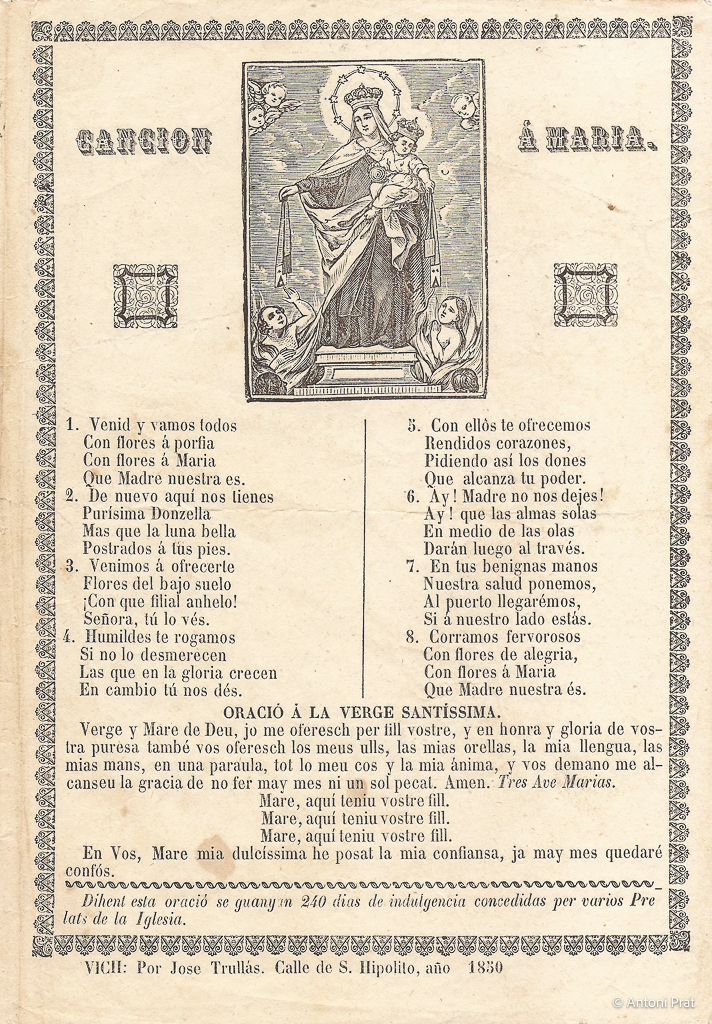 CANCION
Á MARIA.
1. Venid y vamos todos
Con flores á porfia
Con flores á Maria
Que Madre nuestra es.
2. De nuevo aquí nos tienes
Purísima Donzella
Mas que la luna bella
Postrados á tus pies.
3. Venimos á ofrecerte
Flores del bajo suelo
¡Con que filial anhelo!
Señora, tú lo vés.
4. Humildes te rogamos
Si no lo desmerecen
Las que en la gloria crecen
En cambio tú nos dés.
5. Con ellos te ofrecemos
Rendidos corazones,
Pidiendo así los dones
Que alcanza tu poder.
6. Ay! Madre no nos dejes!
Ay! que las almas solas
En medio de las olas
Darán luego al través.
7. En tus benignas manos
Nuestra salud ponemos,
Al puerto llegarémos,
Si á nuestro lado estás.
8. Corramos fervorosos
Con flores de alegria,
Con flores á Maria
Que Madre nuestra és.
ORACIÓ Á LA VERGE SANTÍSSIMA.
Verge y Mare de Deu, jo me oferesch per fill vostre, y en honra y gloria de vos-
tra puresa també vos oferesch los meus ulls, las mias orellas, la mia llengua, las
mias mans, en una paraula, tot lo meu cos y la mia ánima, y vos demano me al-
canseu la gracia de no fer may mes ni un sol pecat. Amen. Tres Ave Marias.
Mare, aquí teniu vostre fill.
Mare, aquí teniu vostre fill.
Mare, aquí teniu vostre fill.
En Vos, Mare mia dulcíssima he posat la mia confiansa, ja may mes quedaré
confós.
Dihent esta oració se guanyan 240 dias de indulgencia concedidas per varios Pre
lats de la Iglesia.
VICH: Por Jose Trullás. Calle de S. Hipolito, año 1850
© Antoni Prat